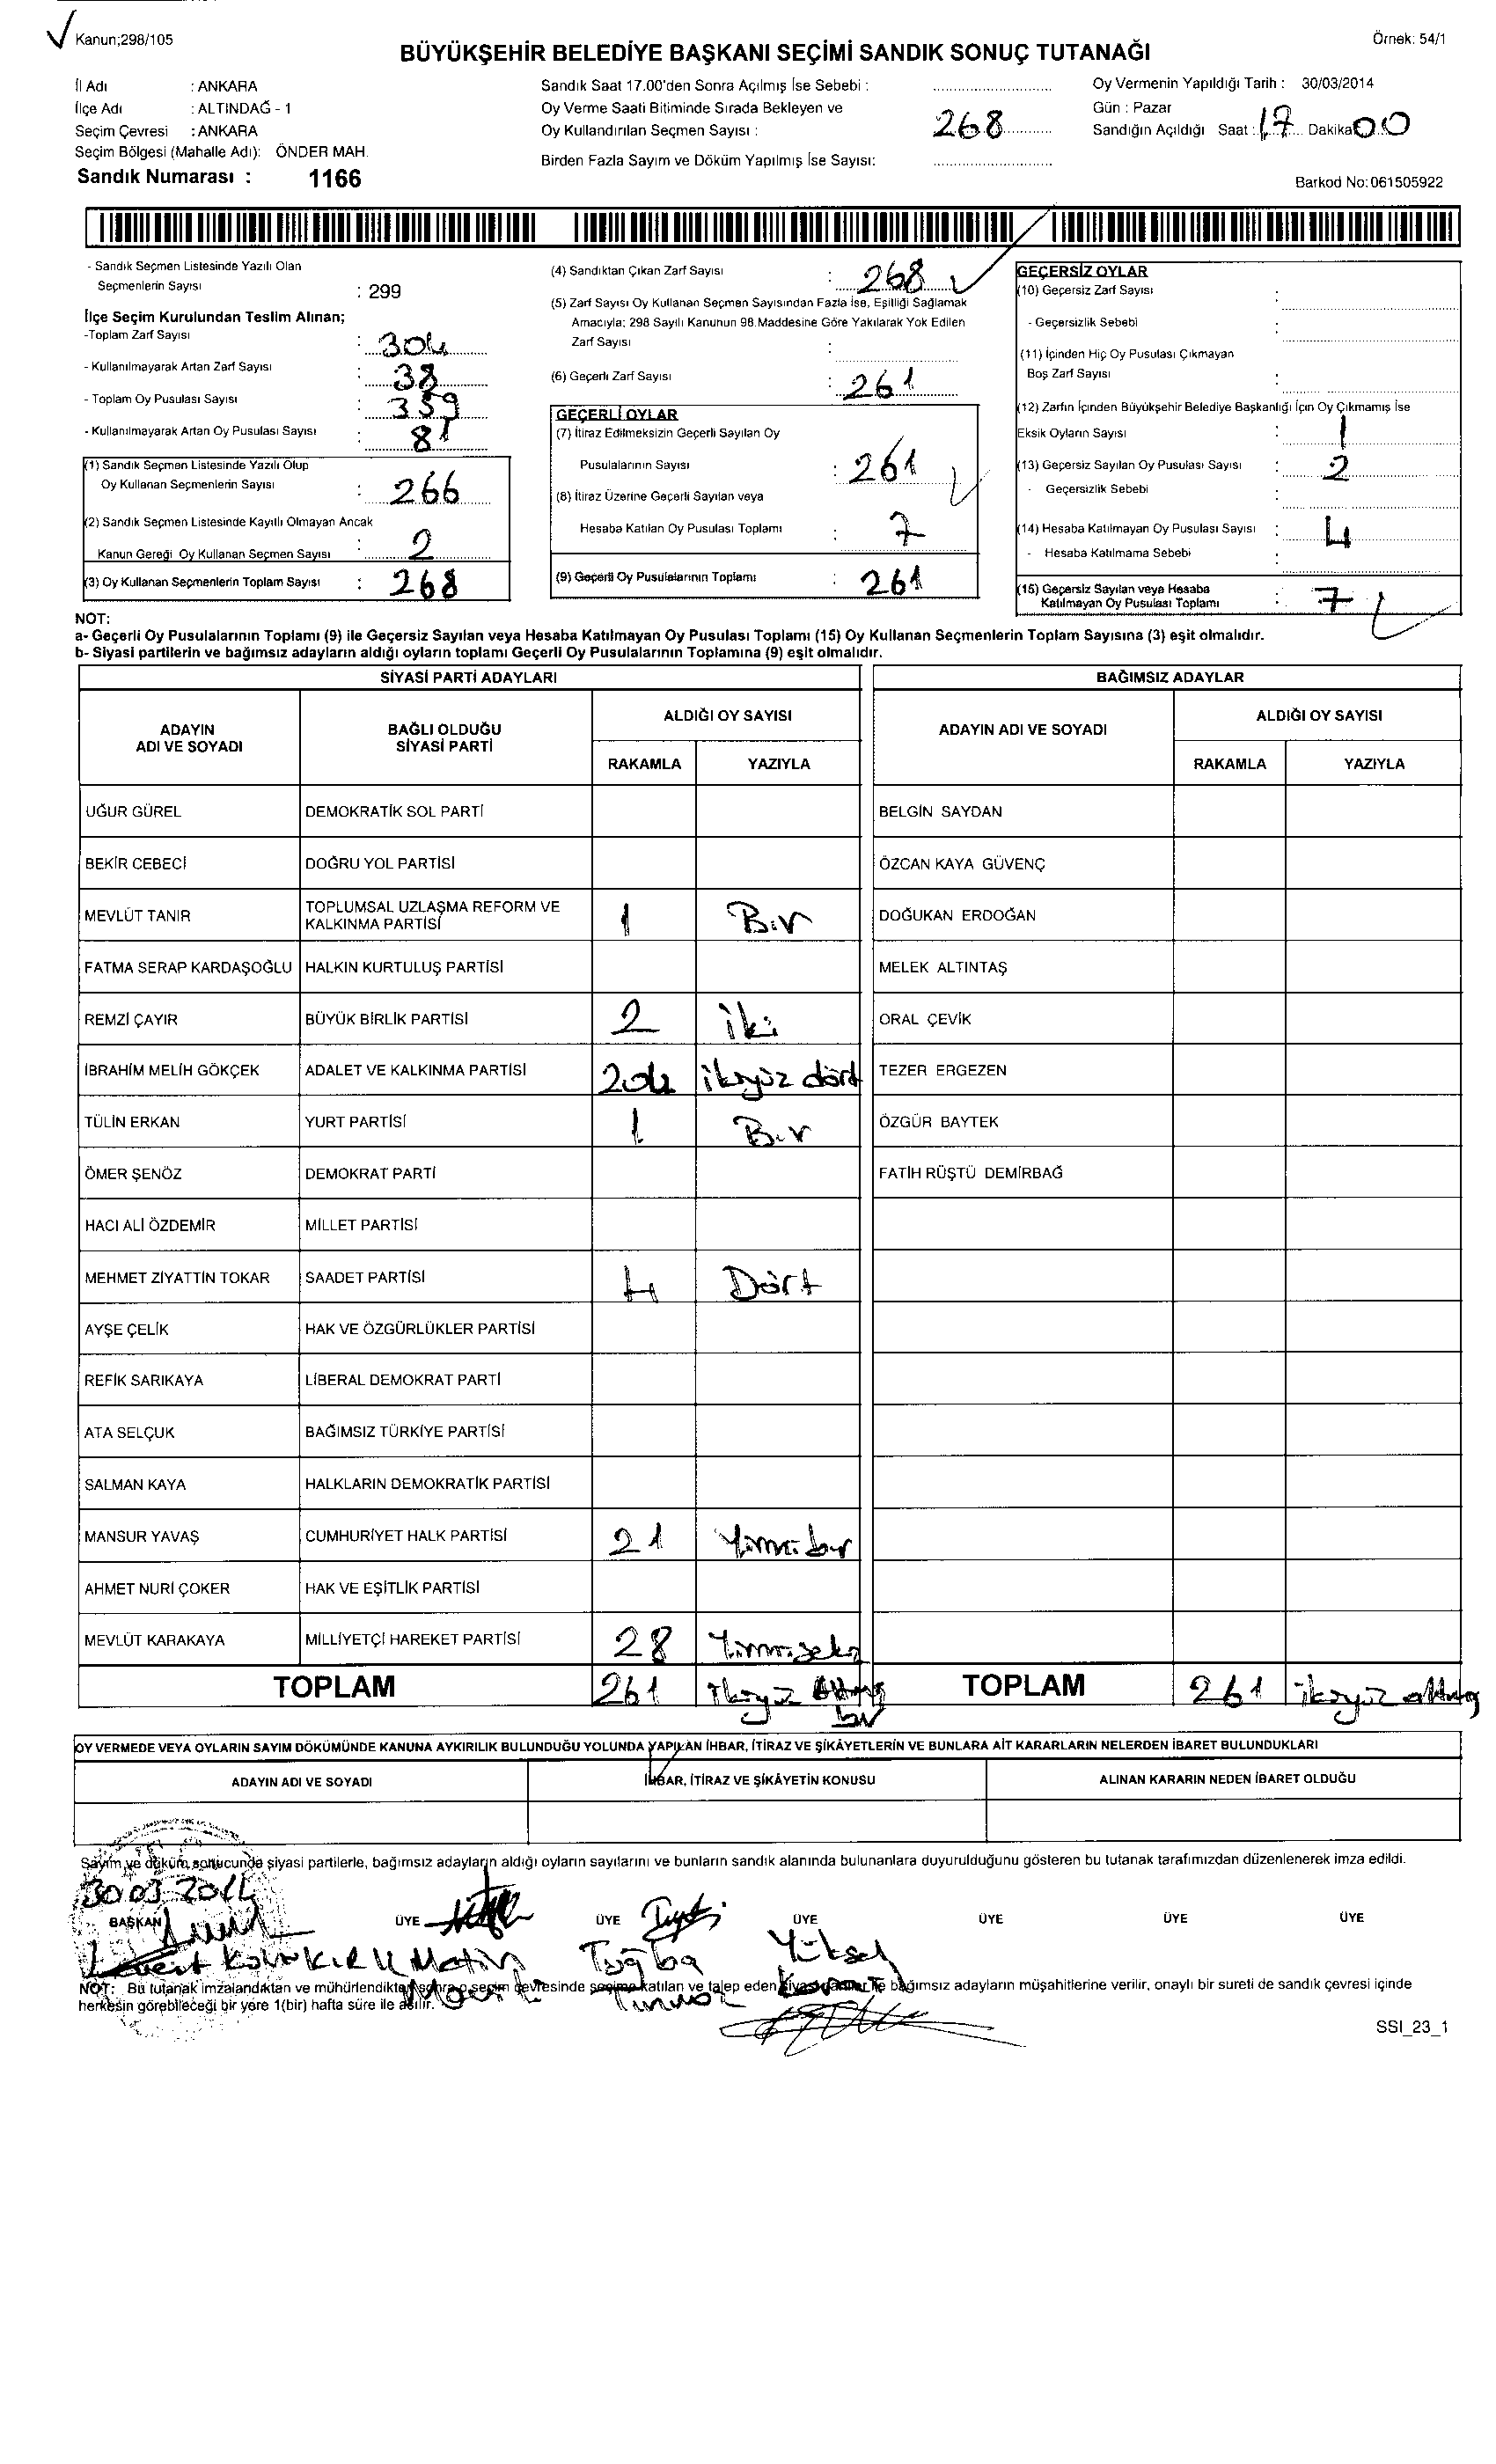 Kanun;298/105
Örnek: 54/1
BÜYÜKŞEHİR BELEDİYE BAŞKANI SEÇİMİ SANDIK SONUÇ TUTANAĞI
İl Adı : ANKARA
İlçe Adı : ALTINDAĞ - 1
Seçim Çevresi : ANKARA
Seçim Bölgesi (Mahalle Adı): ÖNDER MAH.
Sandık Numarası : 1166
Sandık Saat 17.00'den Sonra Açılmış İse Sebebi :
Oy Verme Saati Bitiminde Sırada Bekleyen ve
Oy Kullandırılan Seçmen Sayısı : 268
Birden Fazla Sayım ve Döküm Yapılmış İse Sayısı:
Oy Vermenin Yapıldığı Tarih : 30/03/2014
Gün : Pazar
Sandığın Açıldığı Saat : 17 Dakika 00
Barkod No:061505922
- Sandık Seçmen Listesinde Yazılı Olan
Seçmenlerin Sayısı : 299
İlçe Seçim Kurulundan Teslim Alınan;
-Toplam Zarf Sayısı : 304
- Kullanılmayarak Artan Zarf Sayısı : 38
- Toplam Oy Pusulası Sayısı : 359
- Kullanılmayarak Artan Oy Pusulası Sayısı : 81
(1) Sandık Seçmen Listesinde Yazılı Olup
Oy Kullanan Seçmenlerin Sayısı : 266
(2) Sandık Seçmen Listesinde Kayıtlı Olmayan Ancak
Kanun Gereği Oy Kullanan Seçmen Sayısı : 2
(3) Oy Kullanan Seçmenlerin Toplam Sayısı : 268
(4) Sandıktan Çıkan Zarf Sayısı : 268
(5) Zarf Sayısı Oy Kullanan Seçmen Sayısından Fazla İse, Eşitliği Sağlamak
Amacıyla; 298 Sayılı Kanunun 98.Maddesine Göre Yakılarak Yok Edilen
Zarf Sayısı :
(6) Geçerli Zarf Sayısı : 261
GEÇERLİ OYLAR
(7) İtiraz Edilmeksizin Geçerli Sayılan Oy
Pusulalarının Sayısı : 261
(8) İtiraz Üzerine Geçerli Sayılan veya
Hesaba Katılan Oy Pusulası Toplamı : 7
(9) Geçerli Oy Pusulalarının Toplamı : 261
GEÇERSİZ OYLAR
(10) Geçersiz Zarf Sayısı :
- Geçersizlik Sebebi :
(11) İçinden Hiç Oy Pusulası Çıkmayan
Boş Zarf Sayısı :
(12) Zarfın İçinden Büyükşehir Belediye Başkanlığı İçin Oy Çıkmamış İse
Eksik Oyların Sayısı : 1
(13) Geçersiz Sayılan Oy Pusulası Sayısı : 2
- Geçersizlik Sebebi :
(14) Hesaba Katılmayan Oy Pusulası Sayısı : 4
- Hesaba Katılmama Sebebi :
(15) Geçersiz Sayılan veya Hesaba
Katılmayan Oy Pusulası Toplamı : 7
NOT:
a- Geçerli Oy Pusulalarının Toplamı (9) ile Geçersiz Sayılan veya Hesaba Katılmayan Oy Pusulası Toplamı (15) Oy Kullanan Seçmenlerin Toplam Sayısına (3) eşit olmalıdır.
b- Siyasi partilerin ve bağımsız adayların aldığı oyların toplamı Geçerli Oy Pusulalarının Toplamına (9) eşit olmalıdır.
SİYASİ PARTİ ADAYLARI
ADAYIN ADI VE SOYADI
BAĞLI OLDUĞU SİYASİ PARTİ
ALDIĞI OY SAYISI
RAKAMLA YAZIYLA
UĞUR GÜREL DEMOKRATİK SOL PARTİ
BEKİR CEBECİ DOĞRU YOL PARTİSİ
MEVLÜT TANIR TOPLUMSAL UZLAŞMA REFORM VE KALKINMA PARTİSİ 1 Bir
FATMA SERAP KARDAŞOĞLU HALKIN KURTULUŞ PARTİSİ
REMZİ ÇAYIR BÜYÜK BİRLİK PARTİSİ 2 iki
İBRAHİM MELİH GÖKÇEK ADALET VE KALKINMA PARTİSİ 204 ikiyüz dört
TÜLİN ERKAN YURT PARTİSİ 1 Bir
ÖMER ŞENÖZ DEMOKRAT PARTİ
HACI ALİ ÖZDEMİR MİLLET PARTİSİ
MEHMET ZİYATTİN TOKAR SAADET PARTİSİ 4 Dört
AYŞE ÇELİK HAK VE ÖZGÜRLÜKLER PARTİSİ
REFİK SARIKAYA LİBERAL DEMOKRAT PARTİ
ATA SELÇUK BAĞIMSIZ TÜRKİYE PARTİSİ
SALMAN KAYA HALKLARIN DEMOKRATİK PARTİSİ
MANSUR YAVAŞ CUMHURİYET HALK PARTİSİ 21 Yirmi bir
AHMET NURİ ÇOKER HAK VE EŞİTLİK PARTİSİ
MEVLÜT KARAKAYA MİLLİYETÇİ HAREKET PARTİSİ 28 Yirmi sekiz
TOPLAM 261 ikiyüz altmış bir
BAĞIMSIZ ADAYLAR
ADAYIN ADI VE SOYADI
ALDIĞI OY SAYISI
RAKAMLA YAZIYLA
BELGİN SAYDAN
ÖZCAN KAYA GÜVENÇ
DOĞUKAN ERDOĞAN
MELEK ALTINTAŞ
ORAL ÇEVİK
TEZER ERGEZEN
ÖZGÜR BAYTEK
FATİH RÜŞTÜ DEMİRBAĞ
TOPLAM 261 ikiyüz altmış
OY VERMEDE VEYA OYLARIN SAYIM DÖKÜMÜNDE KANUNA AYKIRILIK BULUNDUĞU YOLUNDA YAPILAN İHBAR, İTİRAZ VE ŞİKÂYETLERİN VE BUNLARA AİT KARARLARIN NELERDEN İBARET BULUNDUKLARI
ADAYIN ADI VE SOYADI İHBAR, İTİRAZ VE ŞİKÂYETİN KONUSU ALINAN KARARIN NEDEN İBARET OLDUĞU
Sayım ve döküm sonucunda siyasi partilerle, bağımsız adayların aldığı oyların sayılarını ve bunların sandık alanında bulunanlara duyurulduğunu gösteren bu tutanak tarafımızdan düzenlenerek imza edildi.
30 03 2014
BAŞKAN ÜYE ÜYE ÜYE ÜYE ÜYE ÜYE
Levent Metin Tuğba Yüksel
NOT: Bu tutanak imzalandıktan ve mühürlendikten sonra o seçim çevresinde seçime katılan ve talep eden siyasi partiler ile bağımsız adayların müşahitlerine verilir, onaylı bir sureti de sandık çevresi içinde
herkesin görebileceği bir yere 1(bir) hafta süre ile asılır.
SSI_23_1